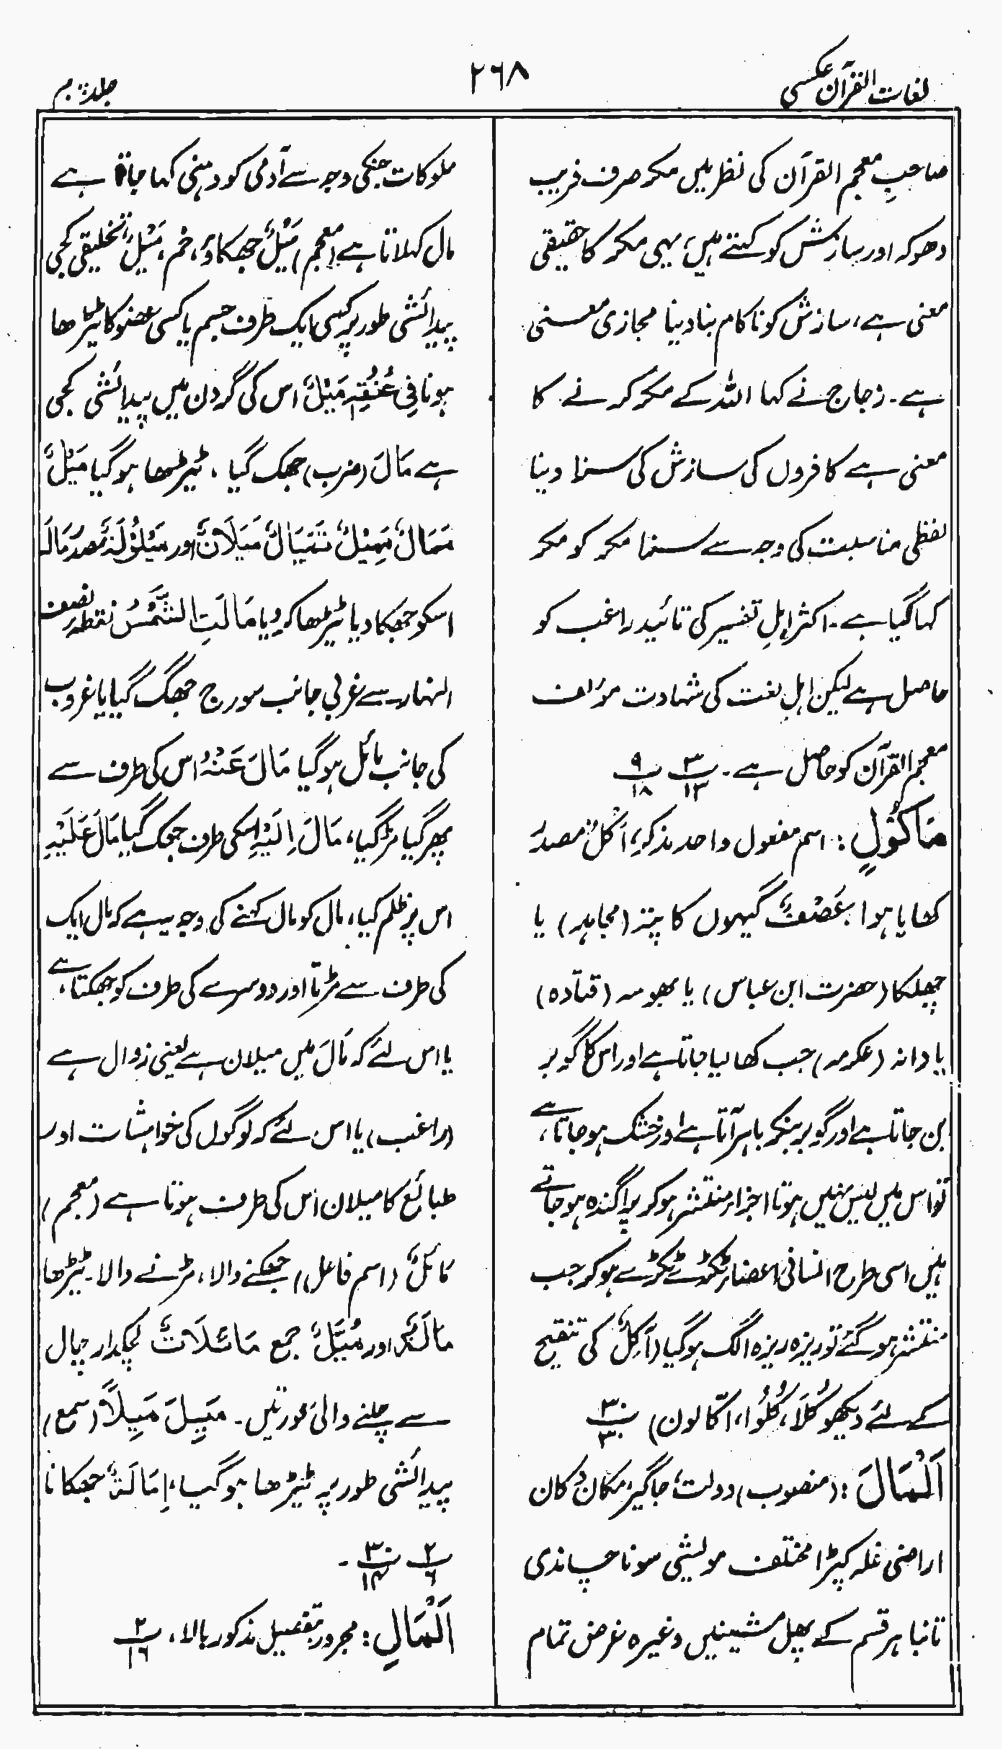 لغات القرآن عکسی
۲۶۸
جلد پنجم
صاحبِ معجم القرآن کی نظر میں مکر صرف فریب
دھوکہ اور سازش کو کہتے ہیں، یہی مکر کا حقیقی
معنی ہے، سازش کو ناکام بنا دینا مجازی معنی
ہے۔ زجاج نے کہا اللہ کے مکر کرنے کا
معنی ہے کافروں کی سازش کی سزا دینا
لفظی مناسبت کی وجہ سے سزا مکر کو مکر
کہا گیا ہے۔ اکثر اہلِ تفسیر کی تائید راغب کو
حاصل ہے لیکن اہلِ لغت کی شہادت مؤلف
معجم القرآن کو حاصل ہے۔ ۳/۱۳ ۹/۱۸
مَأْکُوْلٍ: اسم مفعول واحد مذکر، اَکْلٌ مصدر
کھایا ہوا، عَصْفٌ گیہوں کا پتہ (مجاہد) یا
چھلکا (حضرت ابن عباس) یا بھوسہ (قتادہ)
یا دانہ (عکرمہ) جب کھا لیا جاتا ہے اور اس کا گوبر
بن جاتا ہے اور گوبر بنکر باہر آتا ہے اور خشک ہو جاتا ہے،
تو اس میں لیس نہیں ہوتا اجزاء منتشر ہو کر پراگندہ ہو جاتے
ہیں اسی طرح انسانی اعضاء ٹکڑے ٹکڑے ہو کر جب
منتشر ہو گئے تو ریزہ ریزہ الگ ہو گیا (اَکْلٌ کی تنقیح
کے لئے دیکھو کُلَا، کُلُوْا، اکّالون) ۳۰/۳۰
اَلْمَالَ: (منصوب) دولت، جاگیر، مکان، دکان
اراضی غلہ کپڑا مختلف مویشی سونا چاندی
تانبا ہر قسم کے پھل مشینیں وغیرہ غرض تمام
ملوکات جنکی وجہ سے آدمی کو دہنی کہا جاتا ہے
مال کہلاتا ہے (معجم) مَیْلٌ جھکاؤ، خم، مَیْلٌ تخلیقی کجی
پیدائشی طور پر کسی ایک طرف جسم یا کسی عضو کا ٹیڑھا
ہونا فِیْ عُنُقِہٖ مَیْلٌ اس کی گردن میں پیدائشی کجی
ہے مَالَ (ضرب) جھک گیا، ٹیڑھا ہو گیا مَیْلٌ
مَمَالٌ مَمِیْلٌ تَمْیَالٌ مَیَلَانٌ اور مَیْلُوْلَۃٌ مصدر مَالَہٗ
اسکو جھکا دیا ٹیڑھا کر دیا مَالَتِ الشَّمْسُ نقطہ نصف
النہار سے غربی جانب سورج جھک گیا یا غروب
کی جانب مائل ہو گیا مَالَ عَنْہُ اس کی طرف سے
پھر گیا مڑ گیا، مَالَ اِلَیْہِ اسکی طرف جھک گیا مَالَ عَلَیْہِ
اس پر ظلم کیا، مال کو مال کہنے کی وجہ یہ ہے کہ مال ایک
کی طرف سے مڑتا اور دوسرے کی طرف کو جھکتا ہے،
یا اس لئے کہ مَالَ میں میلان ہے یعنی زوال ہے
(راغب) یا اس لئے کہ لوگوں کی خواہشات اور
طبائع کا میلان اُس کی طرف ہوتا ہے (معجم)
مَائِلٌ (اسم فاعل) جھکنے والا، مڑنے والا۔ ٹیڑھا
مَالَۃٌ اور مُیَّلٌ جمع مَائلَاتٌ لچکدار چال
سے چلنے والی عورتیں۔ مَیِلَ مَیَلًا (سمع)
پیدائشی طور پر ٹیڑھا ہو گیا، اِمَالَۃٌ جھکانا
۲/۶ ۳۰/۱۴ ۔
اَلْمَالِ: مجرور بتفصیل مذکور بالا، ۲/۱۶